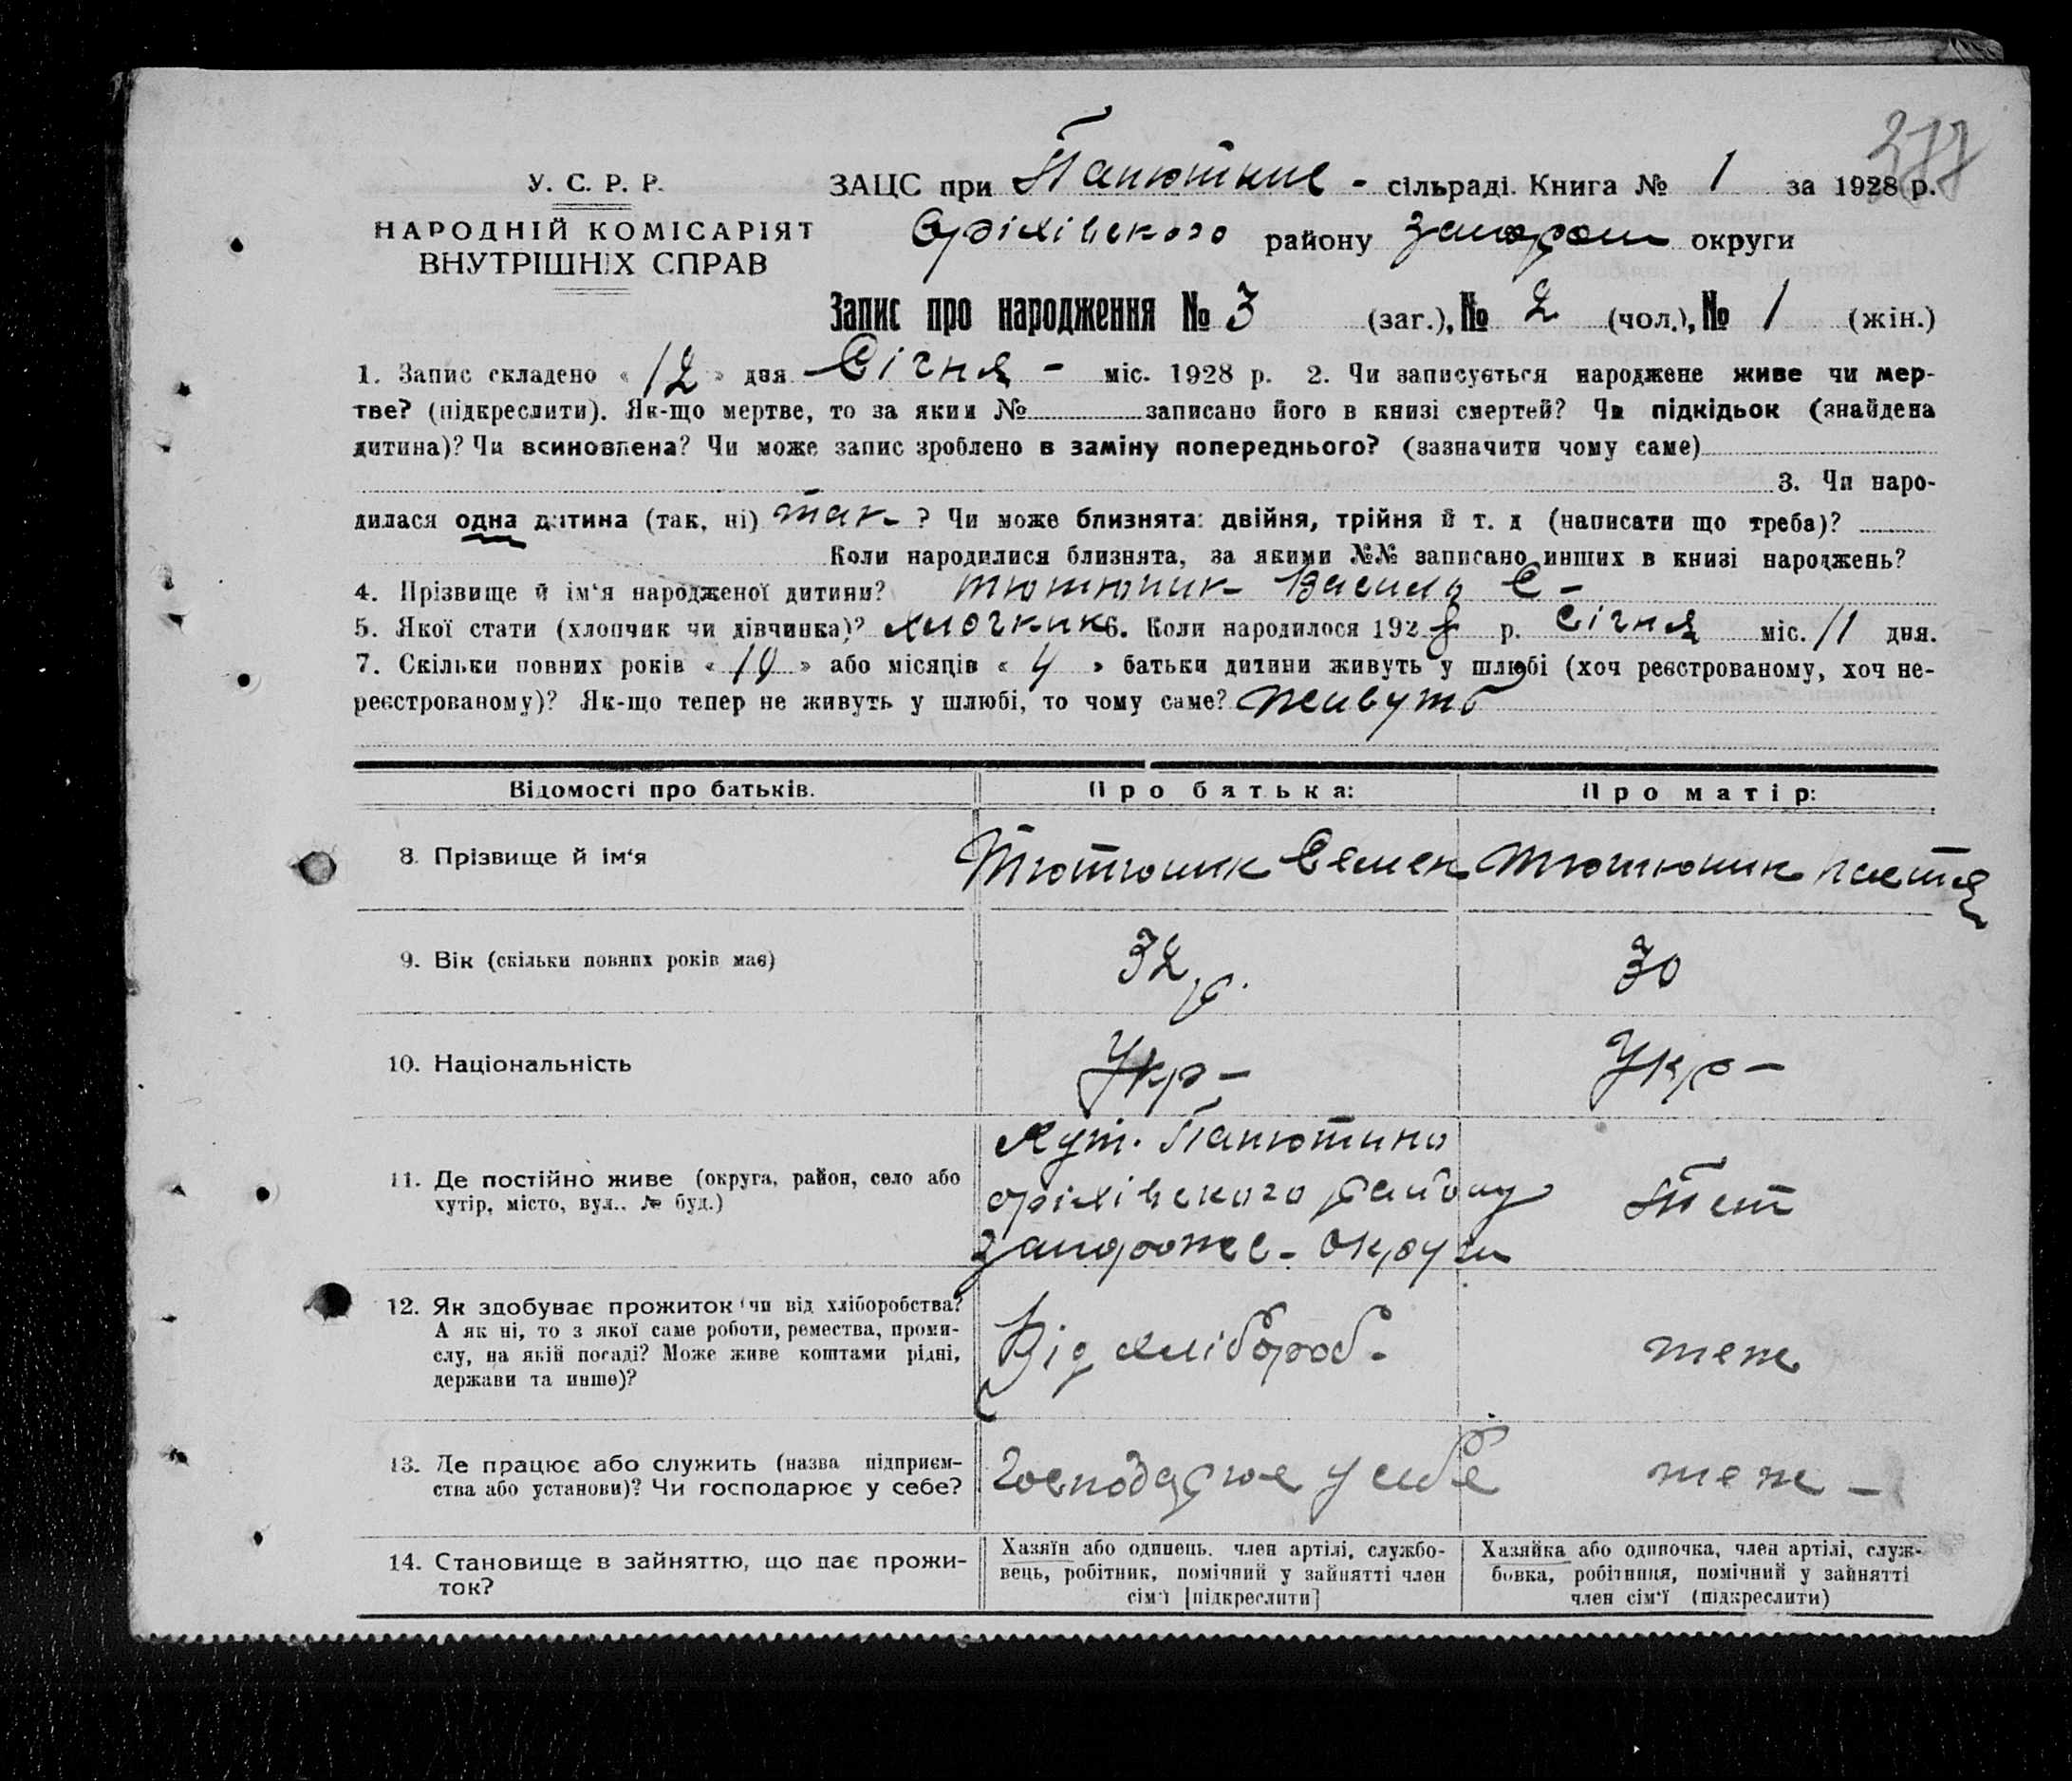 377
У. С. Р. Р.
НАРОДНІЙ КОМІСАРІЯТ
ВНУТРІШНІХ СПРАВ
ЗАЦС при сільраді. Книга № 1 за 1928 р.
Оріхівского району округи
Запис про народження № 3 (заг.), № 2 (чол.), № 1 (жін.)
1. Запис складено « 12 » дня Січня - міс. 1928 р. 2. Чи записується народжене живе чи мер-
тве? (підкреслити). Як-що мертве, то за яким № записано його в книзі смертей? Чи підкідьок (знайдена
дитина)? Чи всиновлена? Чи може запис зроблено в заміну попереднього? (зазначити чому саме)
3. Чи наро-
дилася одна дитина (так, ні) так ? Чи може близнята: двійня, трійня й т. д (написати що треба)?
Коли народилися близнята, за якими №№ записано инших в книзі народжень?
4. Прізвище й ім'я народженої дитини? Тютюник Василь С -
5. Якої стати (хлопчик чи дівчинка)? хлочкик 6. Коли народилося 1928 р. Січня міс. 11 дня.
7. Скільки повних років « 10 » або місяців « 4 » батьки дитини живуть у шлюбі (хоч реєстрованому, хоч не-
реєстрованому)? Як-що тепер не живуть у шлюбі, то чому саме? живуть
Відомості про батьків.
Про батька:
Про матір:
8. Прізвище й ім'я
Тютюник Семен
Тютюник Настя
9. Вік (скільки повних років має)
32 р.
30
10. Національність
Укр -
Укр -
11. Де постійно живе (округа, район, село або
хутір, місто, вул.. № буд.)
Хут. Панютино
оріхівского району
запорожс - округи
12. Як здобуває прожиток (чи від хліборобства?
А як ні, то з якої саме роботи, ремества, проми-
слу, на якій посаді? Може живе коштами рідні,
держави та инше)?
Від хлібороб -
теж
13. Де працює або служить (назва підприєм-
ства або установи)? Чи господарює у себе?
Господарює у себе
теж -
14. Становище в зайняттю, що дає прожи-
ток?
Хазяїн або одинець. член артілі, службо-
вець, робітник, помічний у зайнятті член
сім'ї [підкреслити]
Хазяйка або одиночка, член артілі, служ-
бовка, робітниця, помічний у зайнятті
член сім'ї (підкреслити)